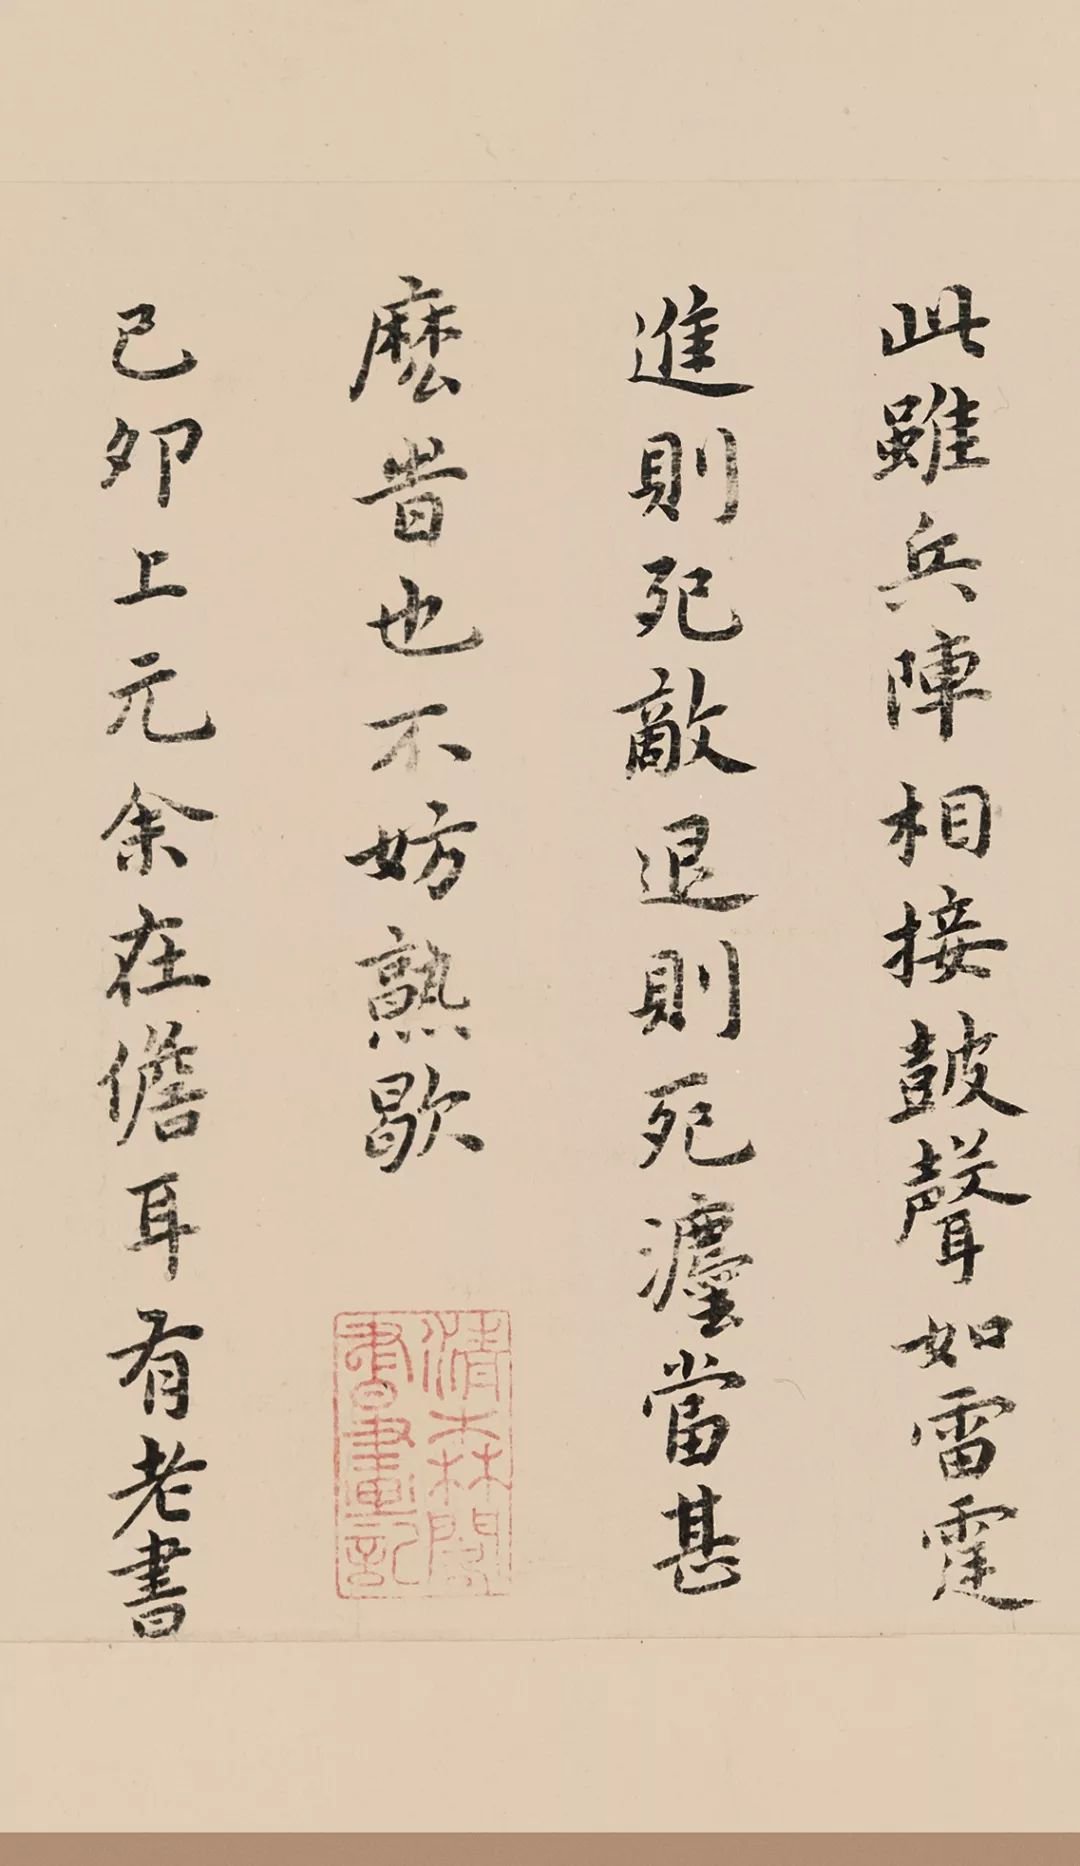 此雖兵陣相接皷聲如雷霆
進則死敵退則死瀍當甚
麽旹也不妨熟歇
清森閣
書畫記
己卯上元余在儋耳有老書